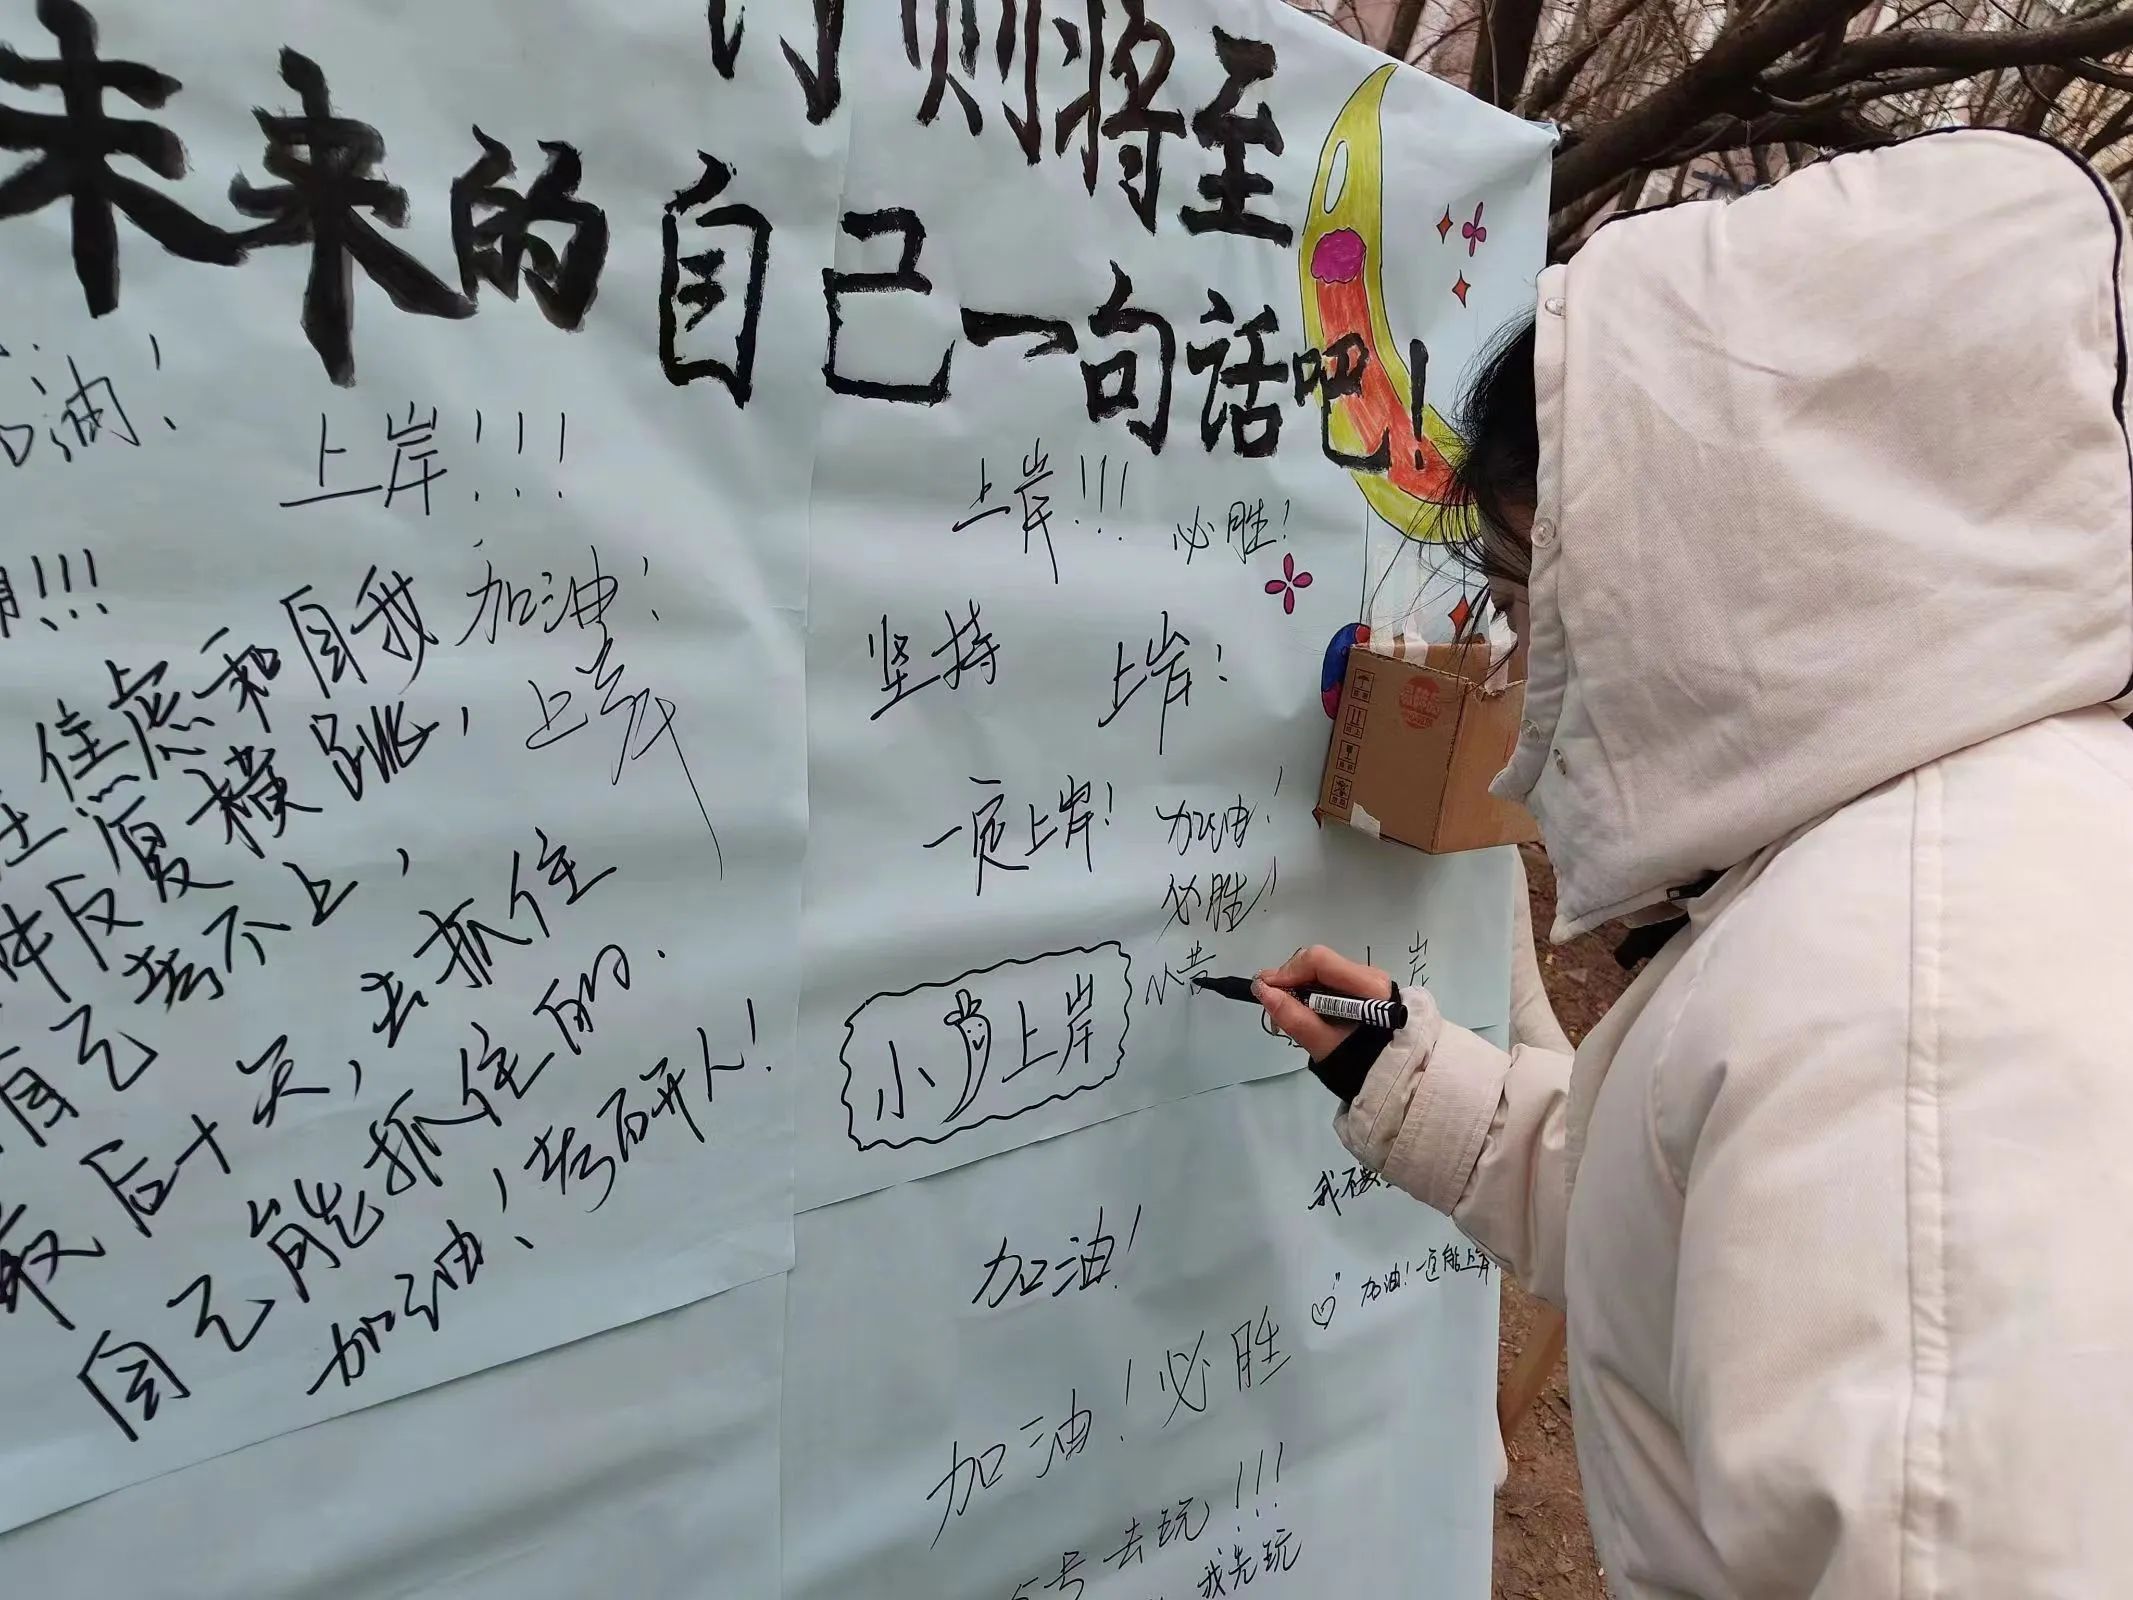 行则将至
未来的自己一句话吧！
加油！
上岸！！！
上岸！！！
必胜！
！！！
焦虑和自我
反复横跳，
考不上，
自己
最后十天，去抓住
自己能抓住的.
加油！考研人！
加油！
上岸
坚持
上岸！
一定上岸！
加油！
必胜！
小 上岸
岸
加油！
加油！必胜
我不
加油！一定能上岸
号去玩！！！
我先玩